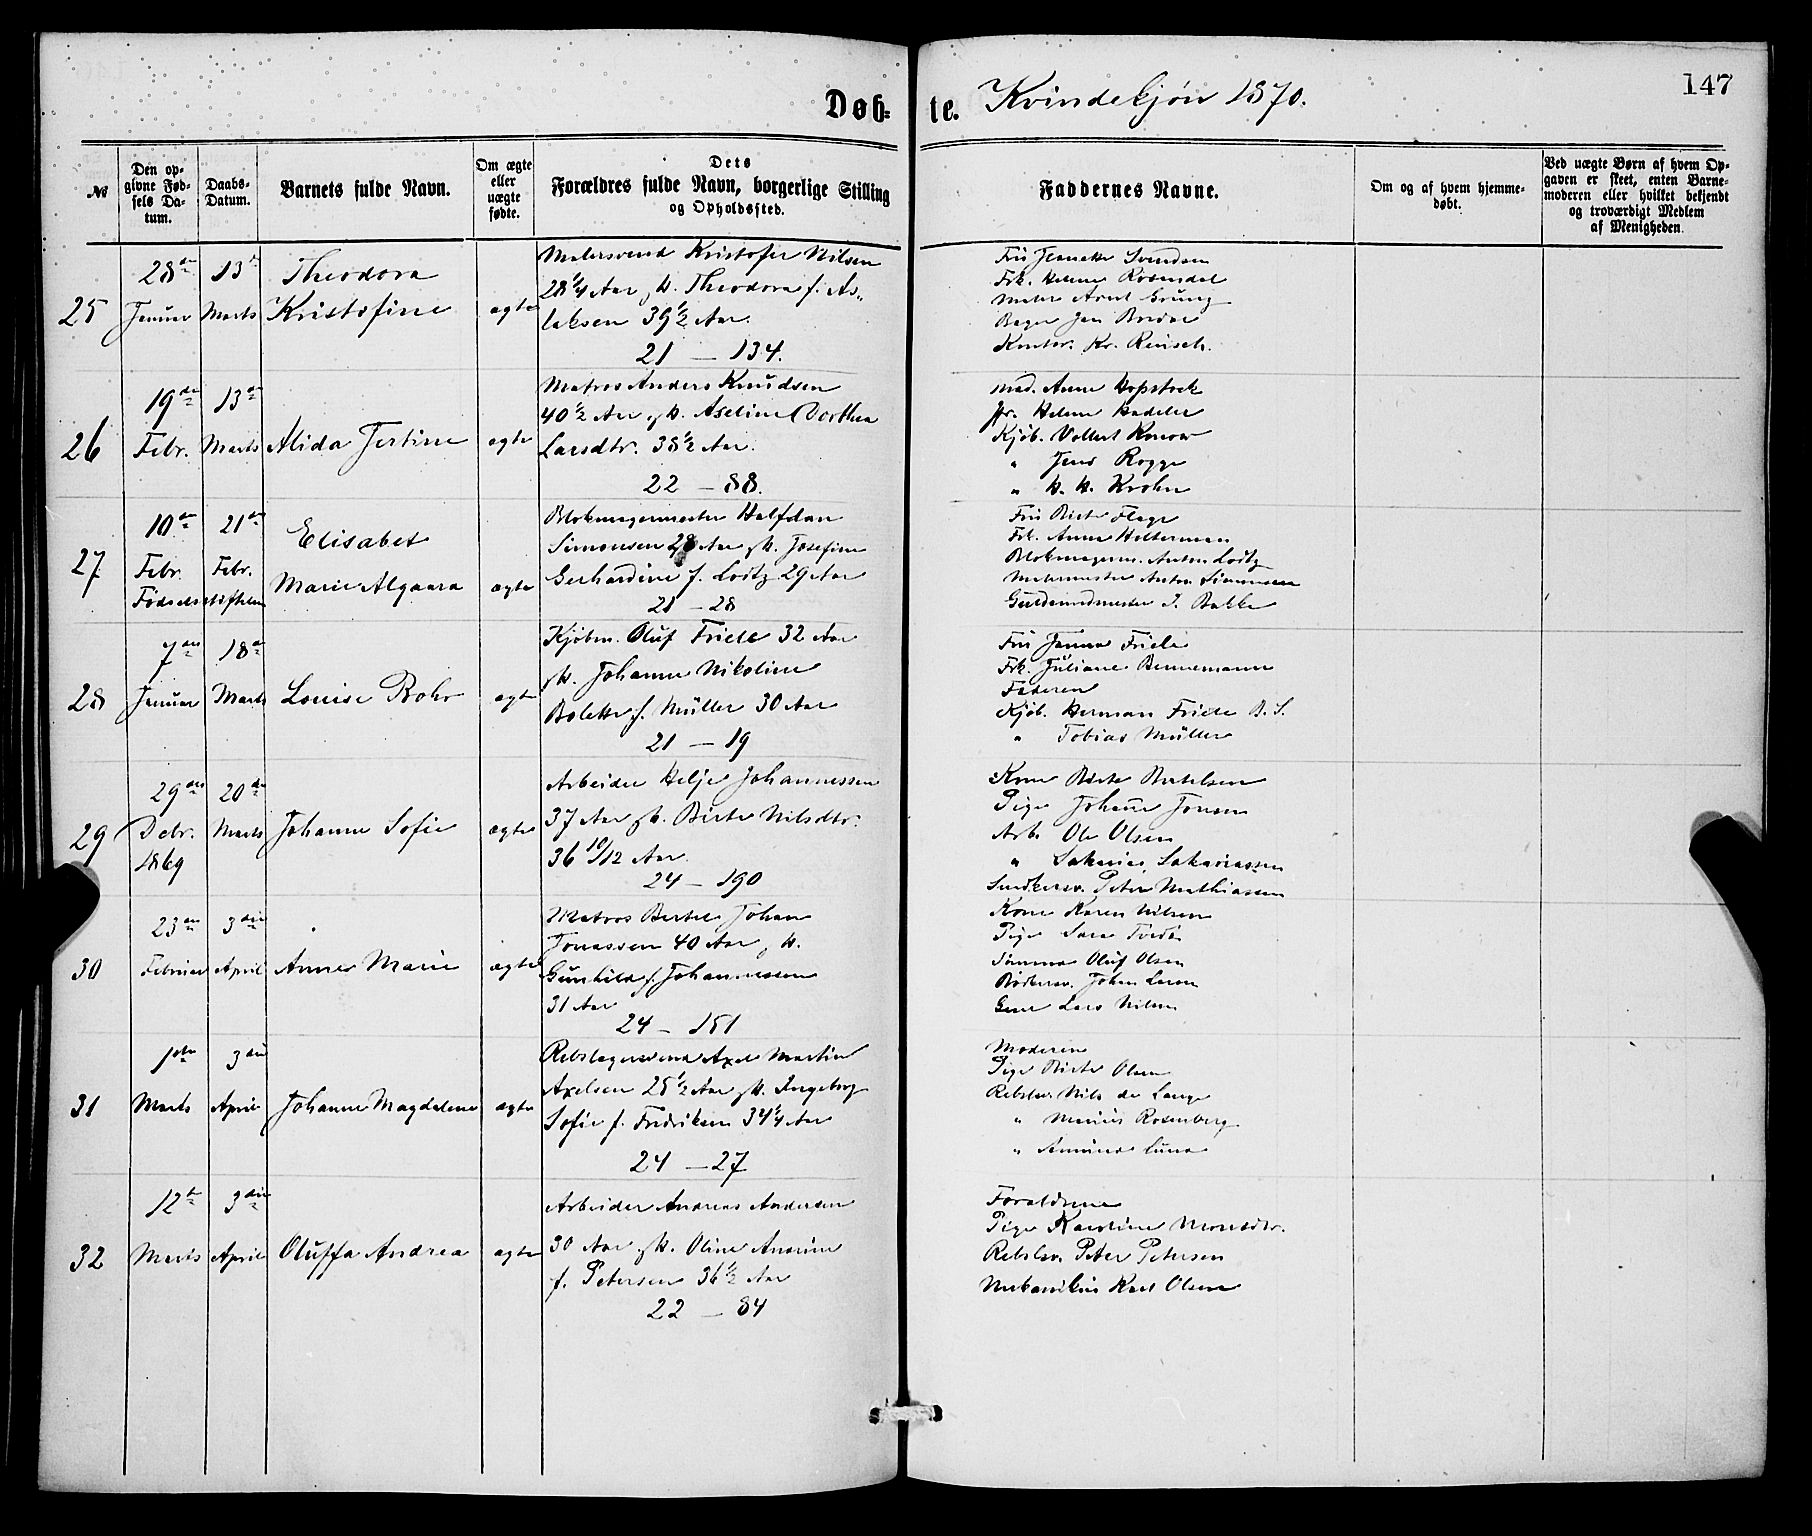 147
Døb-te. Kvindekjøn 1870.
№
Den opgivne Fødsels Datum.
Daabs-Datum.
Barnets fulde Navn.
Om ægte eller uægte fødte.
Dets Forældres fulde Navn, borgerlige Stilling og Opholdssted.
Faddernes Navne.
Om og af hvem hjemmedøbt.
Ved uægte Børn af hvem Opgaven er skeet, enten Barnemoderen eller hvilket bekjendt og troværdigt Medlem af Menigheden.
25
28de Januar
13de Marts
Theodora
Kristofine
ægte
Malersvend Kristofer Nilsen
28 1/4 Aar, H. Theodora f. As-
laksen 39 1/2 Aar.
21 — 134.
Fru Jeanette Svendsen
Frk. Helene Rosendal
Maler Arent Grung
Bager Jan Bredal
Kontor. Kr. Reusch.
26
19de Febr.
13de Marts
Alida Jertine
ægte
Matros Anders Knudsen
40 1/2 Aar, H. Aseline Dorthea
Larsdtr. 38 1/2 Aar.
22 — 88.
Mad. Anne Hopstock
Helene
Kjøb. Vollert Konow
" Jens Rogge
" H. H. Krohn
27
10de Febr.
21de Febr.
Fødselsstiftelsen
Elisabet
Marie Algaara
ægte
Blokmagermester Halfdan
Simonsen 28 Aar, H. Josefine
Gerhardine f. Loitz 29 Aar
21 — 28
Fru Birte Flage
Frk. Anna Halterman
Blokmagerm. Anton Loitz
Malermester Anton Simonsen
Guldsmedmester J. Bakke
28
7de Januar
18de Marts
Louise Rohr
ægte
Kjøbm. Oluf Friele 32 Aar
H. Johanne Nikoline
Bolette f. Müller 30 Aar
21 — 19
Fru Janna Friele
Frk. Juliane Bennemann
Faderen
Kjøb. Herman Friele B. S.
" Tobias Müller
29
29de Debr. 1869
20de Marts
Johanne Sofie
ægte
Arbeider Helje Johannessen
37 Aar, H. Birte Nilsdtr.
36 10/12 Aar.
24 — 190
Kone Birte Bertelsen
Pige Johanne Jonsen
Arb. Ole Olsen
" Sakarias Sakariassen
Snedkersv. Peter Mathiassen
30
23de Februar
3die April
Anne Marie
ægte
Matros Bertel Johan
Jonassen 40 Aar, H.
Gunhild f. Johannessen
31 Aar
24 — 151
Kone Karen Nilsen
Pige Sara
Sømand Oluf Olsen
Bødkersv. Johan Larsen
Lars Nilsen
31
1ste Marts
3die April
Johanne Magdalene
ægte
Rebslagersvend Axel Martin
Axelsen 25 1/2 Aar, H. Ingeborg
Sofie f. Fredriksen 34 1/4 Aar
24 — 27
Moderen
Pige Birte Olsen
Rebslsv. Nils de Lange
" Marius Rosenberg
" Lund
32
12te Marts
3die April
Oluffa Andrea
ægte
Arbeider Andreas Andersen
30 Aar, H. Oline Andrine
f. Petersen 36 1/2 Aar
22 — 84
Forældrene
Pige Karoline Monsdtr.
Rebslsv. Peter Petersen
Mekanikus Karl Olsen